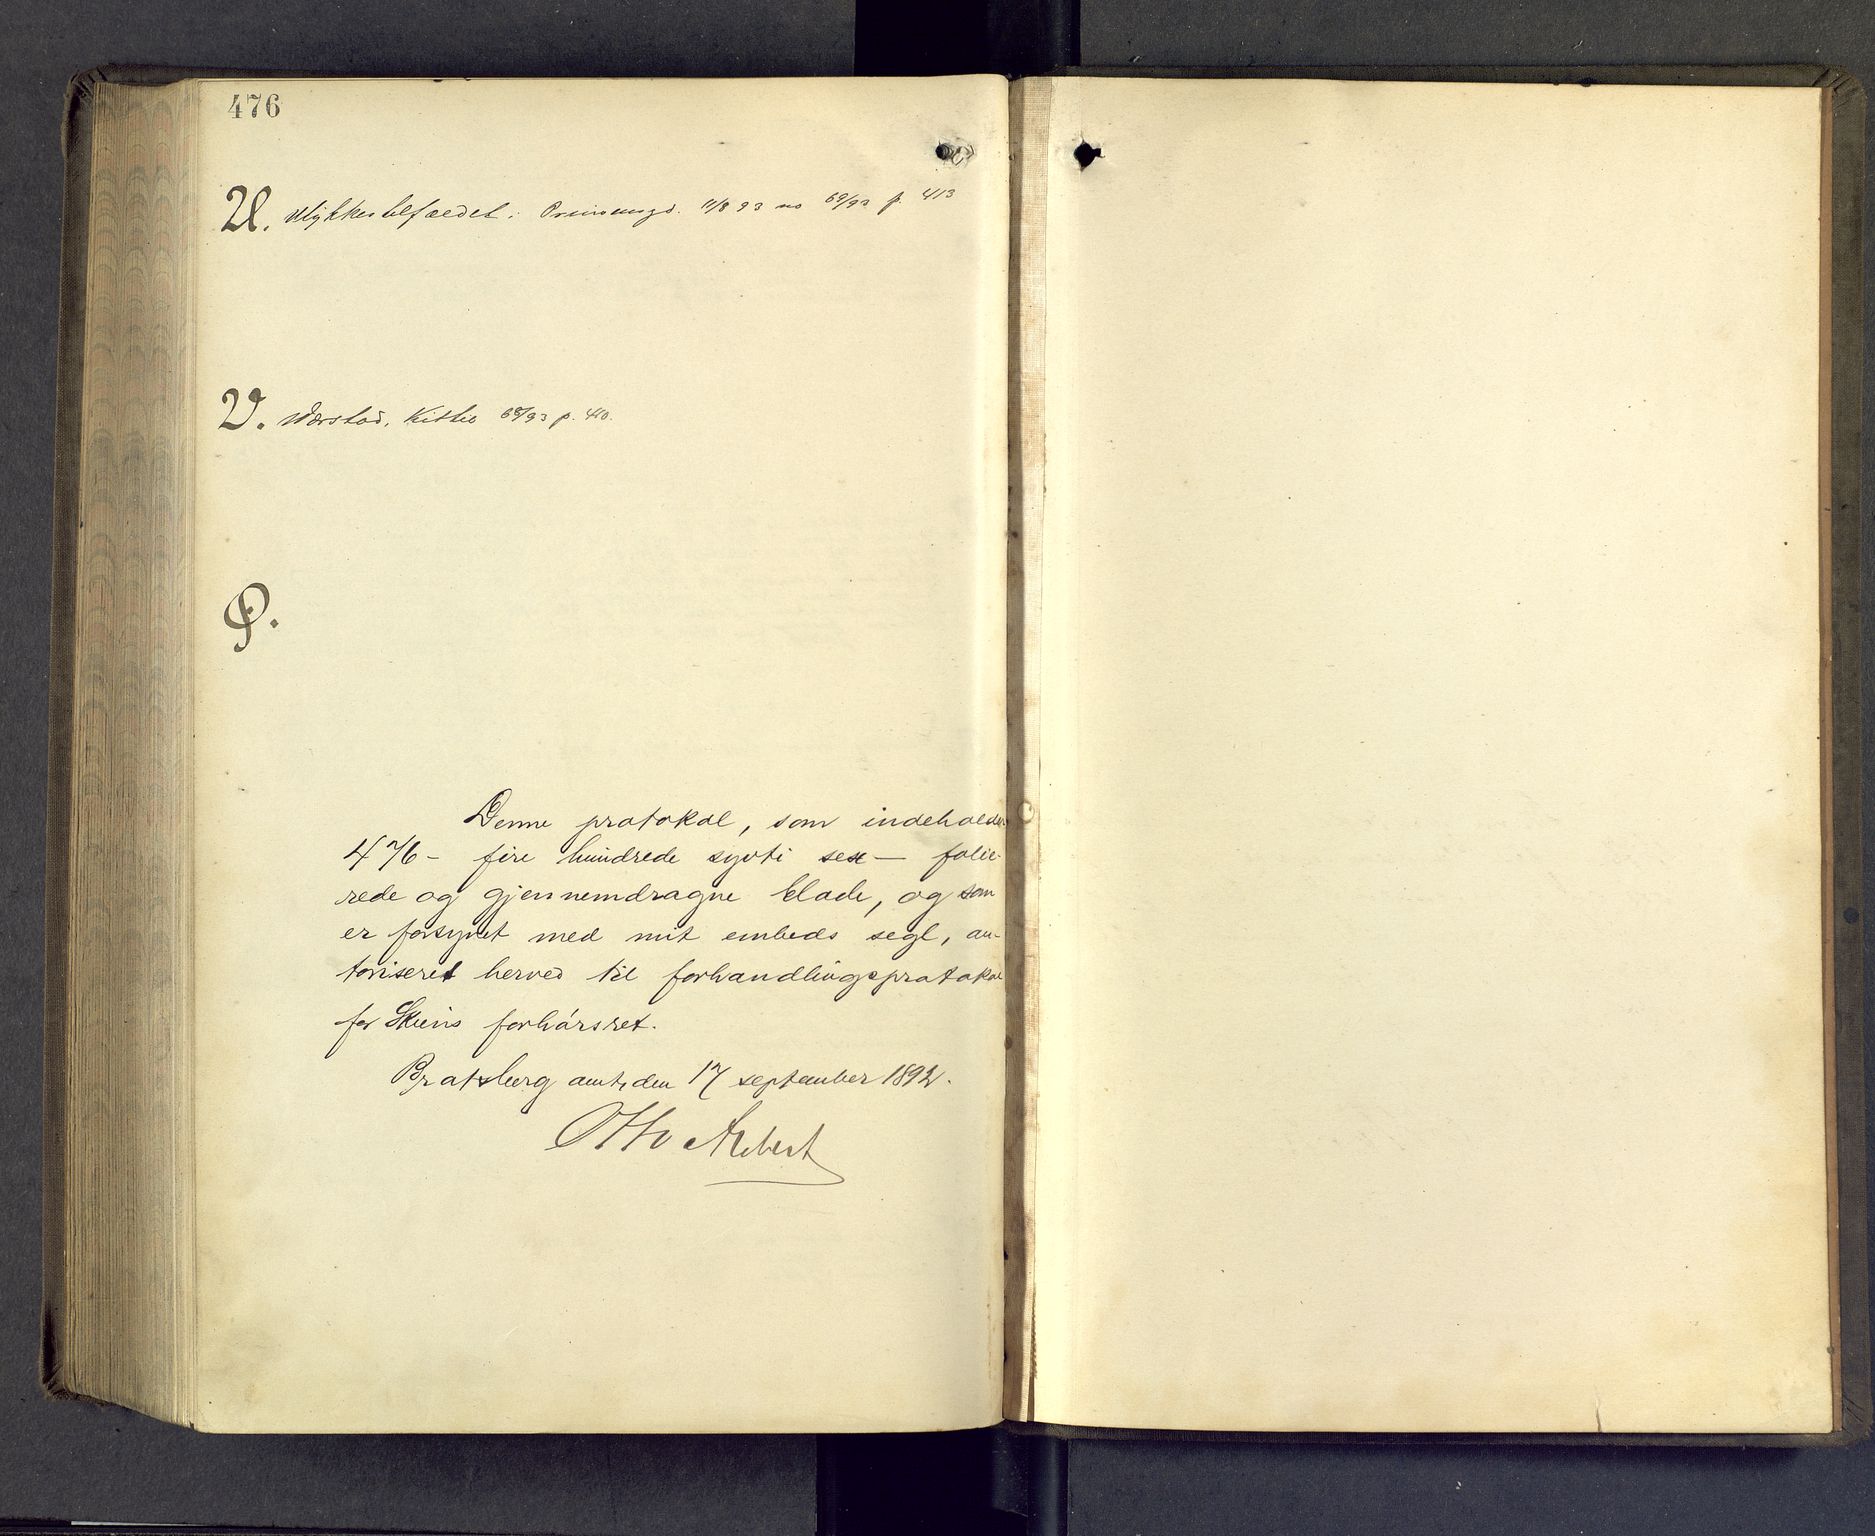 476
U. Ulykkestilfældet: Prinsensgd. 11/8 93 no 69/93 p. 413
V. Værstad, Kittil 68/93 p. 410.
Ø.
Denne protokol, som indeholder
476 – fire hundrede sytti sex – folie-
rede og gjennemdragne blade, og som
er forsynet med mit embeds segl, au-
toriseret herved til forhandlingsprotokol
for Skiens forhørsret.
Bratsberg amt, den 17 september 1892.
Otto